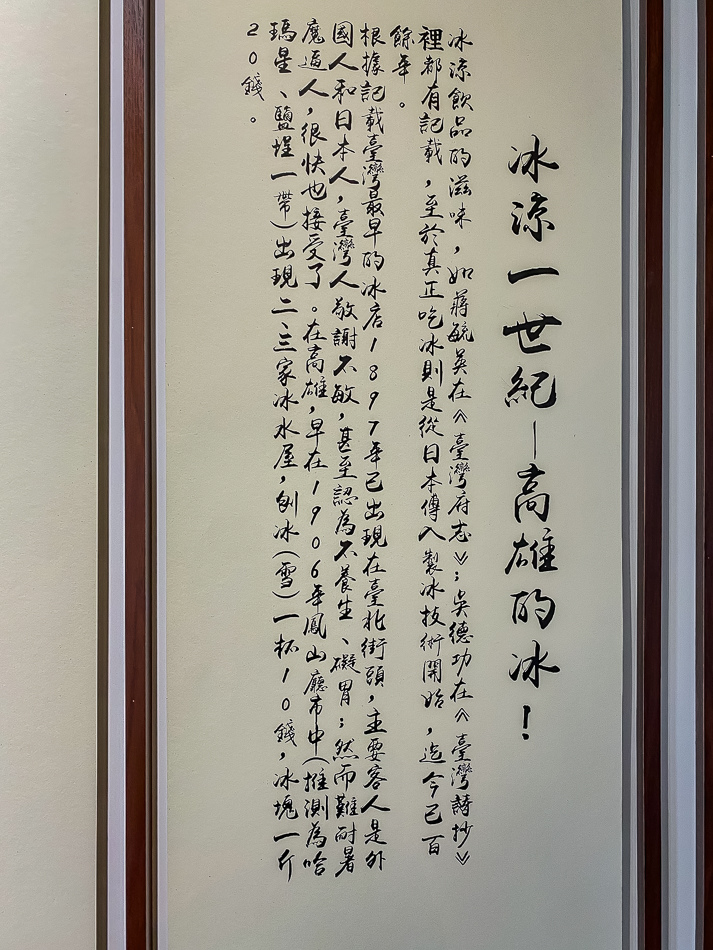 冰涼一世紀—高雄的冰！
冰涼飲品的滋味，如蔣毓英在《臺灣府志》；吳德功在《臺灣詩抄》
裡都有記載，至於真正吃冰則是從日本傳入製冰技術開始，迄今已百
餘年。
根據記載臺灣最早的冰店1897年已出現在臺北街頭，主要客人是外
國人和日本人，臺灣人敬謝不敏，甚至認為不養生、礙胃；然而難耐暑
魔逼人，很快也接受了。在高雄，早在1906年鳳山廳市中(推測為哈
瑪星、鹽埕一帶)出現二三家冰水屋，刨冰(雪)一杯10錢，冰塊一斤
20錢。